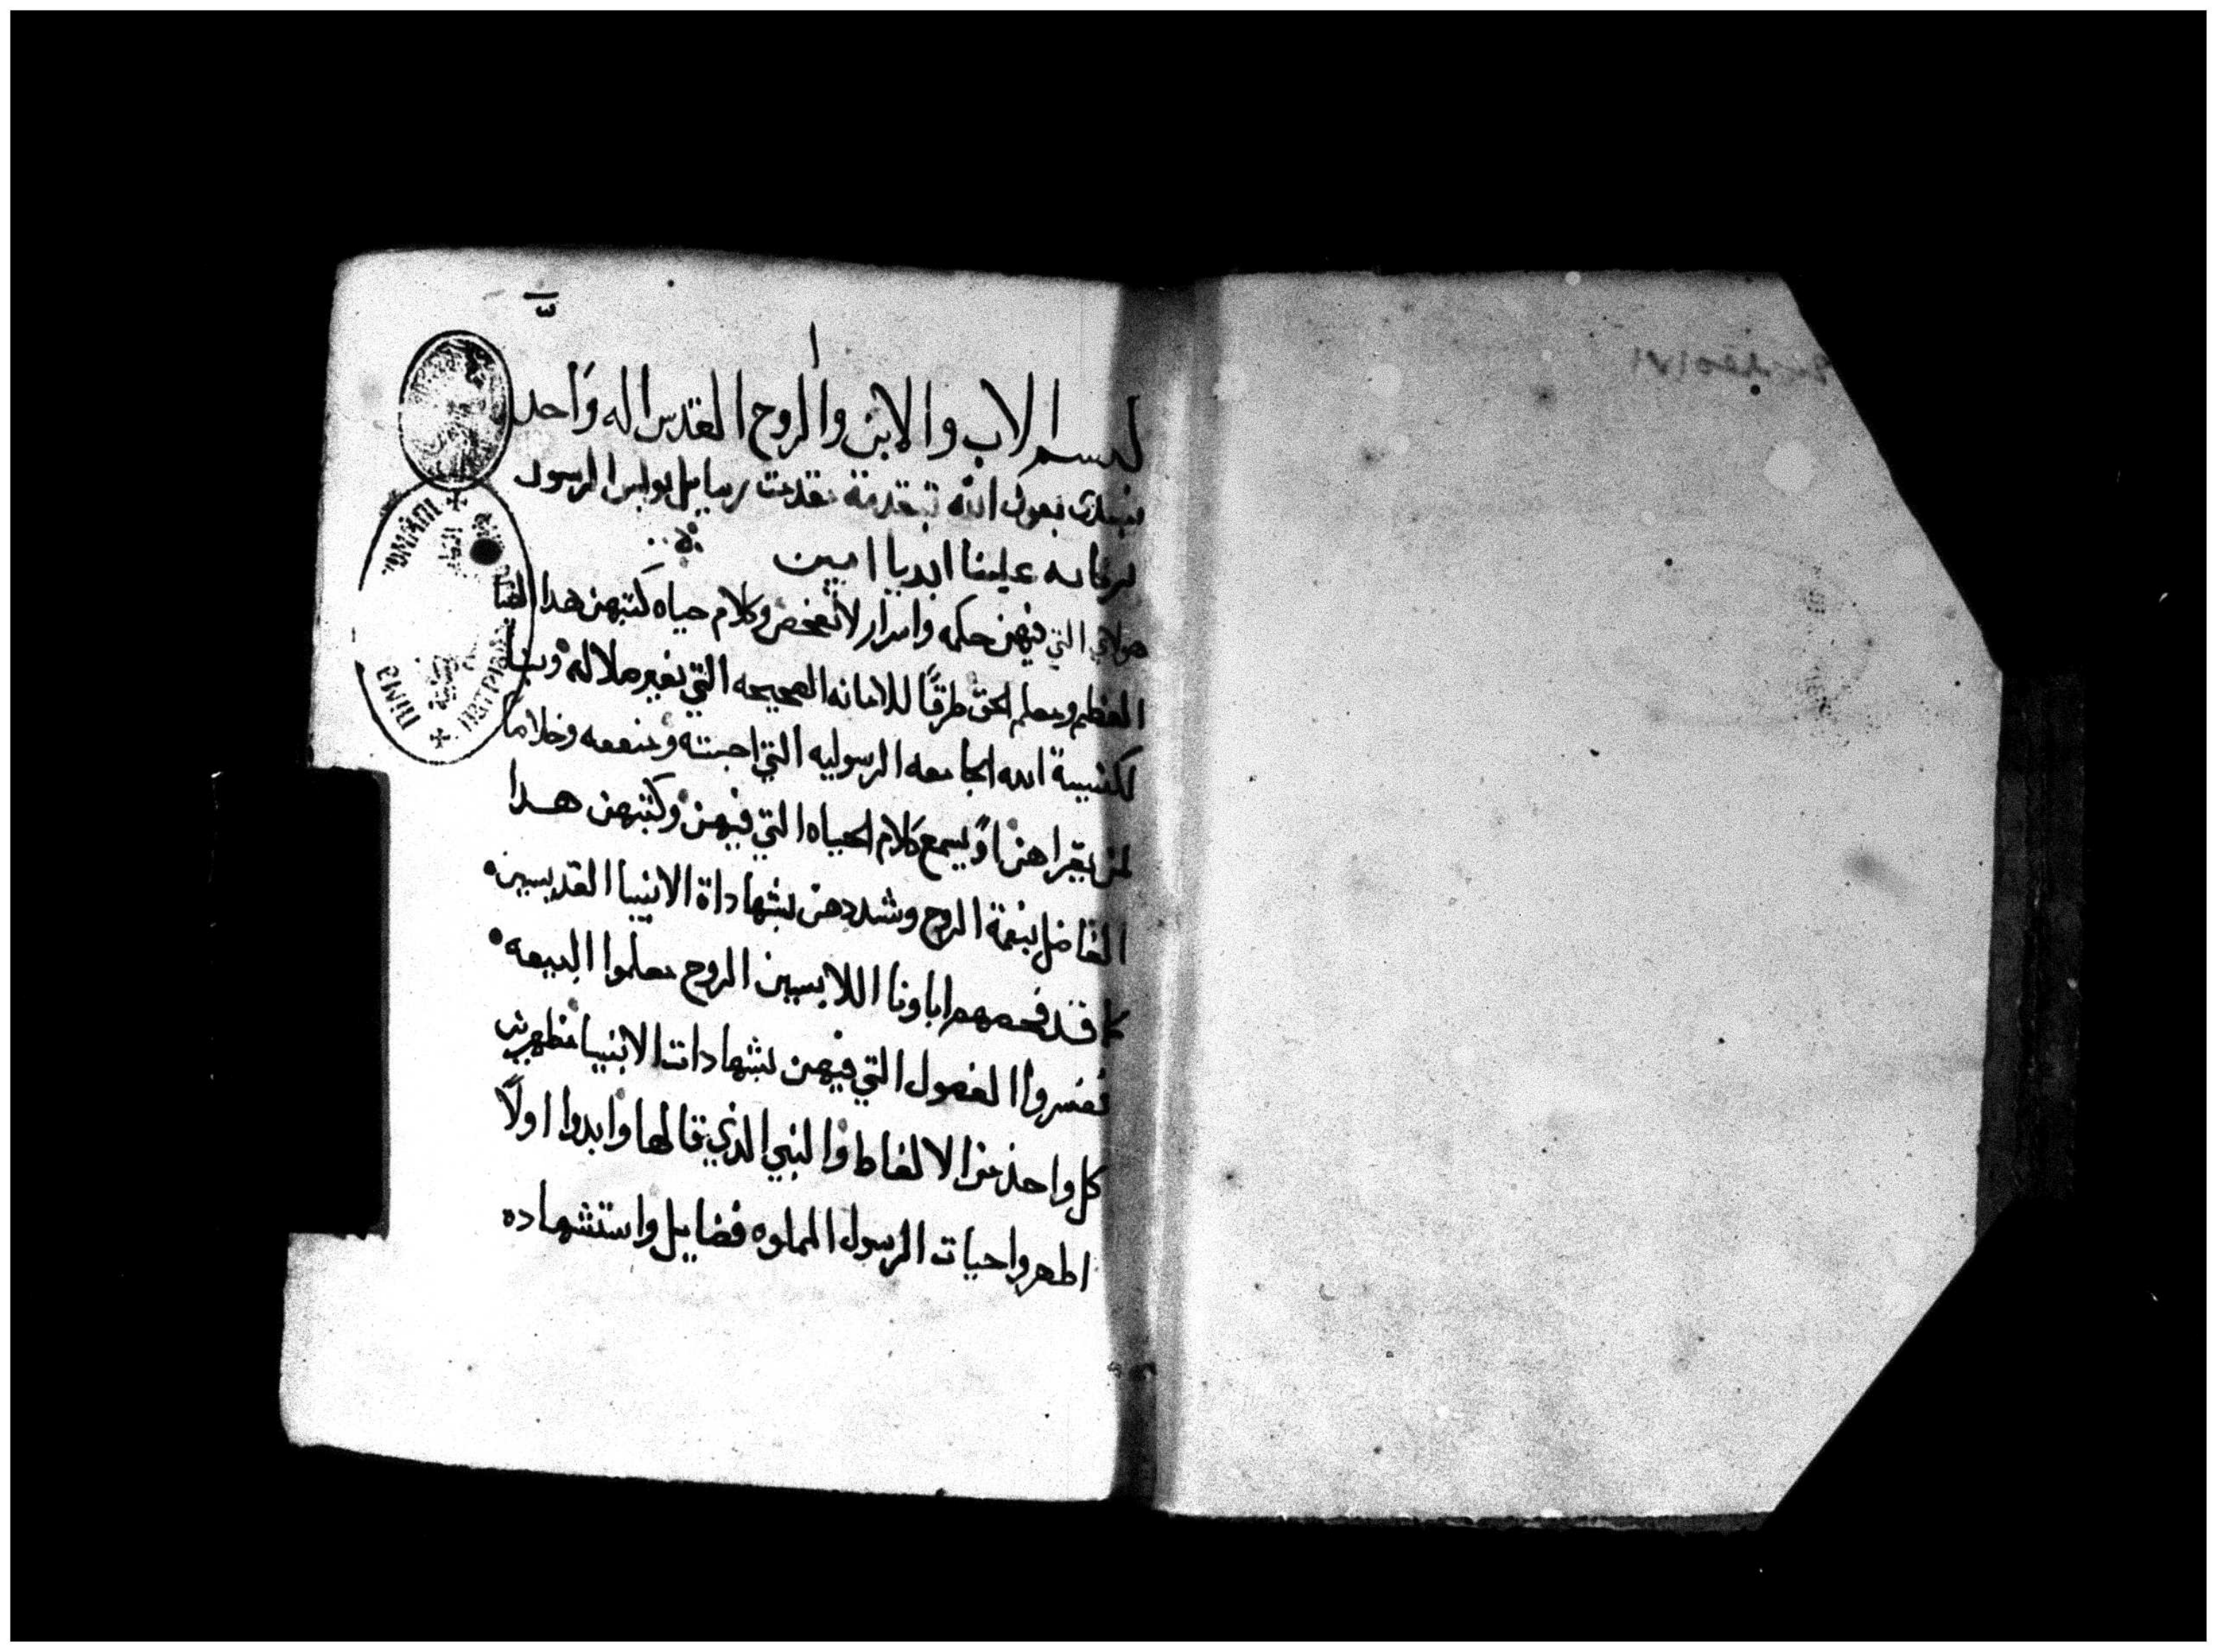 بسم الاب والابن والروح القدس اله واحد
نبتدى بعون الله تبقدمة رسايل بولس الرسول
بركاته علينا ابديا امين
هولاي التي فيهن حكمه واسرار لا تفحص وكلام حياه كتبهن هدا
العظيم ومعلم الحق طرقًا للامانه الصحيحه التي بغير ملاله
لكنيسة الله الجامعه الرسوليه التي احبته ومنفعه وخلاصًا
لمن يقراهن او يسمع كلام الحياه التي فيهن وكتبهن هدا
الفاضل بنعمة الروح وشددهن بشهاداة الانبيا القديسين
كما قد فحصهم اباونا اللابسين الروح معلموا البيعه
نفسروا الفصول التي فيهن بشهادات الانبيا مظهرين
كل واحد من الالفاط والنبي الذي قالها وابدوا اولاً
اطهروا حيات الرسول المملوه فضايل واستشهاده